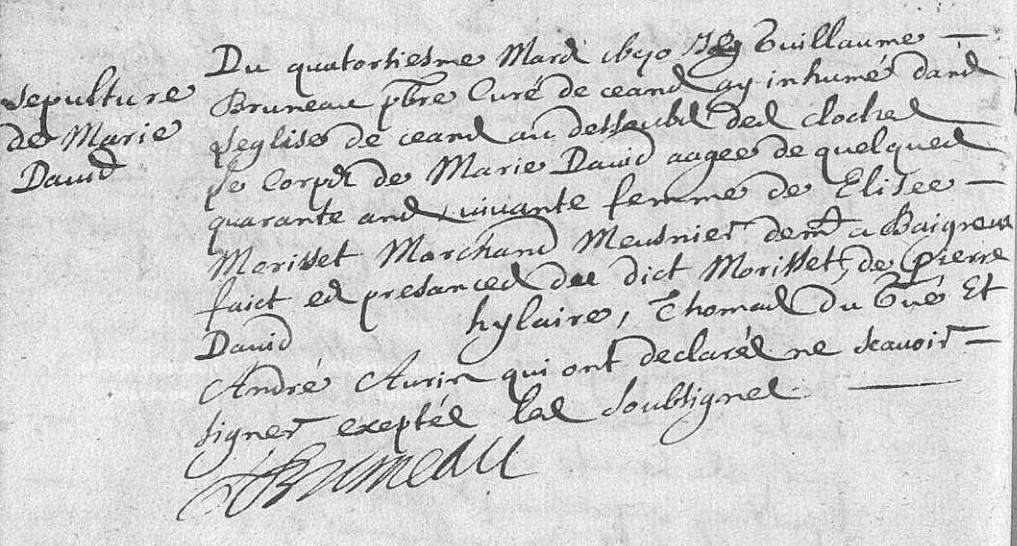 sepulture
de Marie
David
Du quatorsiesme Mars 1690 Je Guillaume
Bruneau pbre Curé de ceans ay inhumé dans
l'eglise de ceans au dessoubs des cloches
le Corps de Marie David aagee de quelques
quarante ans vivante femme de Elisee
Morisset Marchand Meusnier demt a Baigneux
faict es presances du dict Morisset, de Pierre
David hylaire, Thomas du Gué Et
André Aurin qui ont declarés ne scavoir
signer exeptés les soubsignes
Bruneau